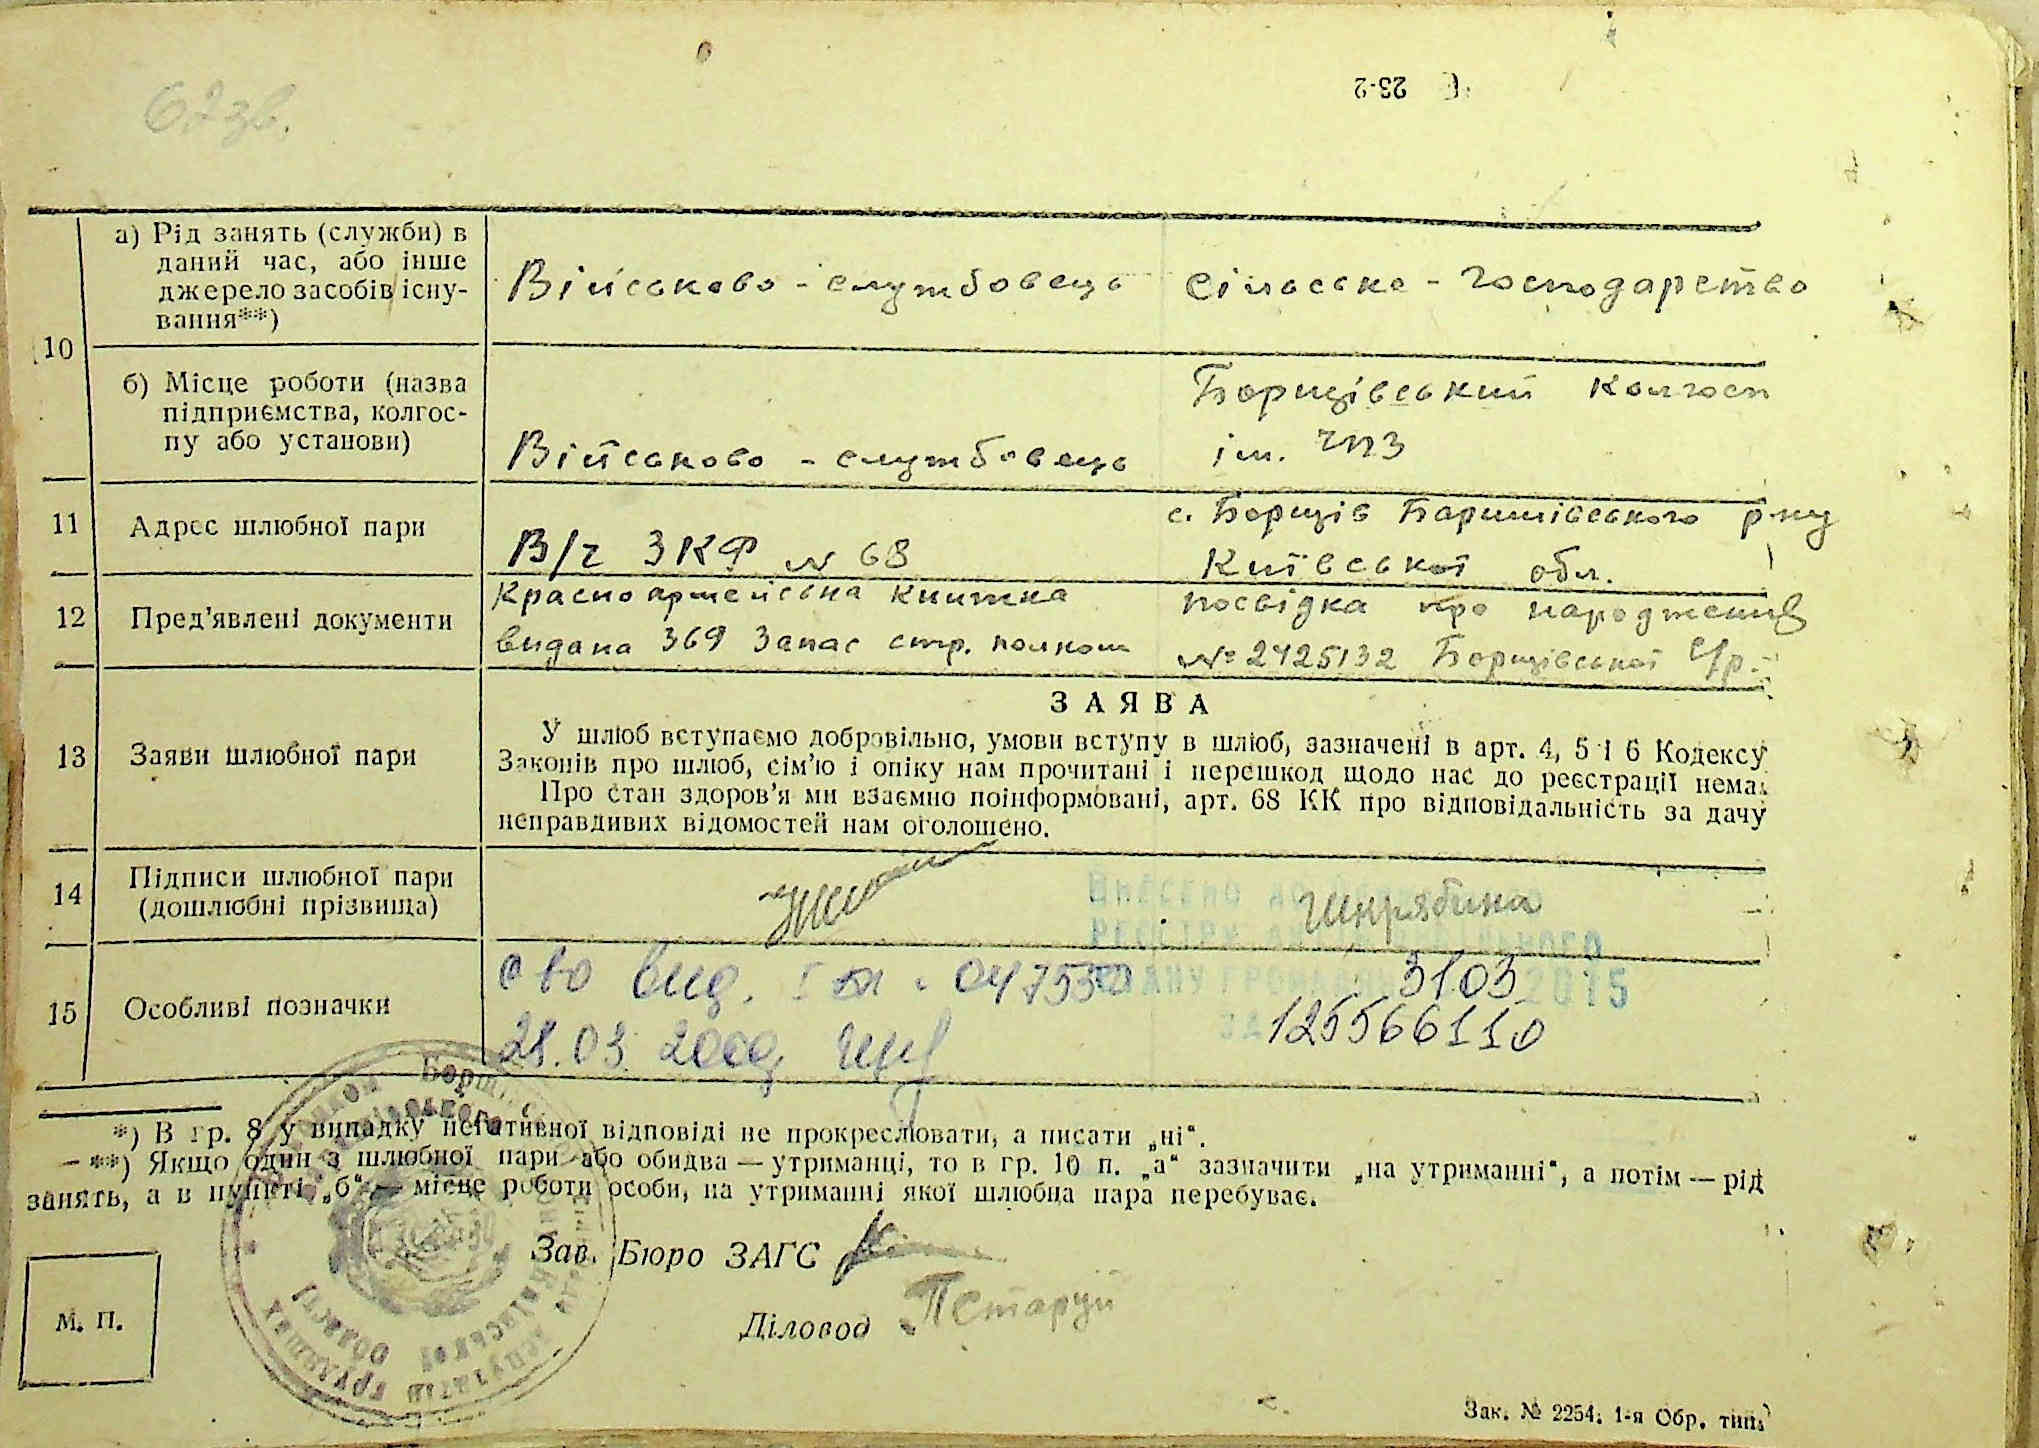 62 зв.
23-2
10
а) Рід занять (служби) в
даний час, або інше
джерело засобів існу-
вання**)
Військово - службовець
сільське - господарство
б) Місце роботи (назва
підприємства, колгос-
пу або установи)
Військово - службовець
Борщівський колгосп
ім.
11
Адрес шлюбної пари
В/ч ЗКФ № 68
с. Борщів Баришівського р-ну
Київської обл.
12
Пред'явлені документи
Красноармейська книжка
видана 369 Запас стр. полком
посвідка про народження
№ 2425132 Борщівської с/р.
13
Заяви шлюбної пари
ЗАЯВА
У шлюб вступаємо добровільно, умови вступу в шлюб, зазначені в арт. 4, 5 і 6 Кодексу
Законів про шлюб, сім'ю і опіку нам прочитані і перешкод щодо нас до реєстрації нема.
Про стан здоров'я ми взаємно поінформовані, арт. 68 КК про відповідальність за дачу
неправдивих відомостей нам оголошено.
14
Підписи шлюбної пари
(дошлюбні прізвища)
Шкрябина
ВНЕСЕНО ДО
РЕЄСТРУ
СТАНУ ГРОМАДЯН 2015
15
Особливі позначки
с во вид. 047530
21.03 2000
3103
125566110
*) В гр. 8 у випадку негативної відповіді не прокреслювати, а писати „ні“.
**) Якщо один з шлюбної пари або обидва — утриманці, то в гр. 10 п. „а“ зазначити „на утриманні“, а потім — рід
занять, а в пункті „б“ — місце роботи особи, на утриманні якої шлюбна пара перебуває.
Зав. Бюро ЗАГС
Діловод
М. П.
Зак. № 2254. 1-я Обр. тип.